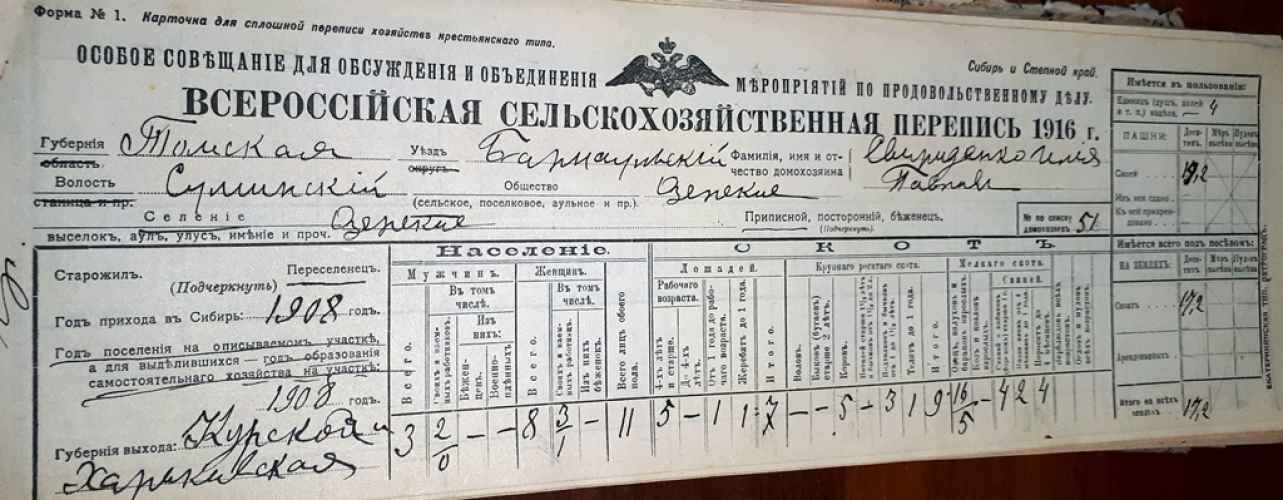 Форма № 1. Карточка для сплошной переписи хозяйствъ крестьянскаго типа.
ОСОБОЕ СОВѢЩАНІЕ ДЛЯ ОБСУЖДЕНІЯ И ОБЪЕДИНЕНІЯ МѢРОПРІЯТІЙ ПО ПРОДОВОЛЬСТВЕННОМУ ДѢЛУ.
Сибирь и Степной край.
ВСЕРОССІЙСКАЯ СЕЛЬСКОХОЗЯЙСТВЕННАЯ ПЕРЕПИСЬ 1916 г.
Губернія Томская Уѣздъ Барнаульскій Фамилія, имя и от- Свириденко Илія
область. округъ. чество домохозяина Павлов
Волость Сулинскій Общество
станица и пр. (сельское, поселковое, аульное и пр.)
Селеніе Приписной, посторонній, бѣженецъ.
выселокъ, аулъ, улусъ, имѣніе и проч. (Подчеркнуть)
№ по списку домохозяевъ 51
Старожилъ. Переселенецъ.
(Подчеркнуть)
Годъ прихода въ Сибирь: 1908 годъ.
Годъ поселенія на описываемомъ участкѣ,
а для выдѣлившихся — годъ образованія
самостоятельнаго хозяйства на участкѣ:
1908 годъ.
Губернія выхода: Курской и
Харьковская
Населеніе.
Мужчинъ. Женщинъ.
Всего.
Въ томъ числѣ.
Своихъ и наем-ныхъ работниковъ.
Изъ нихъ:
Бѣжен-цевъ.
Военно-плѣнныхъ.
Всего.
Въ томъ числѣ.
Своихъ и наем-ныхъ работниц.
Изъ нихъ бѣженокъ.
Всего лицъ обоего пола.
3 2/0 - - 8 3/1 - 11
СКОТЪ
Лошадей.
Рабочаго возраста.
4-хъ лѣтъ и старше.
До 4-хъ лѣтъ.
Отъ 1 года до рабо-чаго возраста.
Жеребятъ до 1 года.
Итого.
5 - 1 1 7/7
Крупнаго рогатаго скота.
Воловъ.
Быковъ (бугаевъ) старше 2 лѣтъ.
Коровъ.
Телятъ до 1 года.
Итого.
- - 5 - 3 1 9
Мелкаго скота.
Свиней.
16/5 - 4 2 4
Имѣется въ пользованіи:
Единицъ (душ., долей и т. п.) надѣла. — 4
ПАШНИ: Деся-тинъ.
Своей 19,2
Изъ нея сдано
Къ ней приарен-довано
Имѣется всего подъ посѣвомъ:
НА ЗЕМЛЯХЪ: Деся-тинъ.
17,2
Арендованныхъ
Итого на всѣхъ земляхъ 17,2